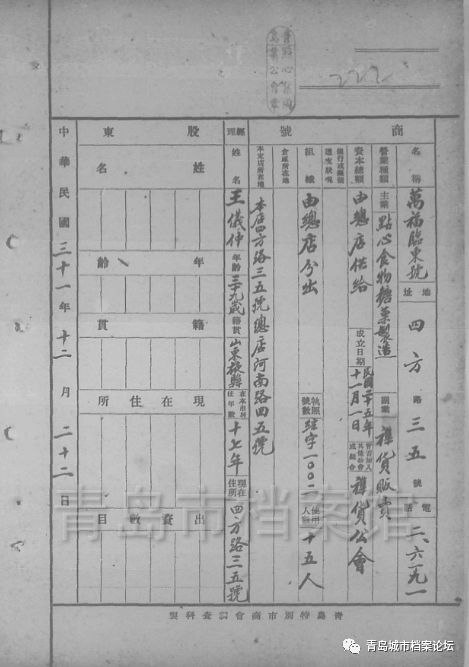 222
商號
名稱 萬福臨東號 地址 四方路三五號 電話 二、六二九一
營業種類 主業 點心食物糖菓製造 副業 雜貨販賣
資本總額 由總店供給 成立日期 民國二十五年十一月一日 雜貨公會
組織 由總店分出 執照號數 使用人數 十五人
倉庫所在地
本支店所在地 本店四方路三五號總店河南路四五號
經理 姓名 王儀仲 年齡 三十九歲 籍貫 山東掖縣 十七年 現在住所 四方路三五號
股東
姓名
年齡
籍貫
現在住所
出資數目
中華民國三十一年十二月二十二日
青島特別市商會調查科製
青岛市档案馆
青岛城市档案论坛